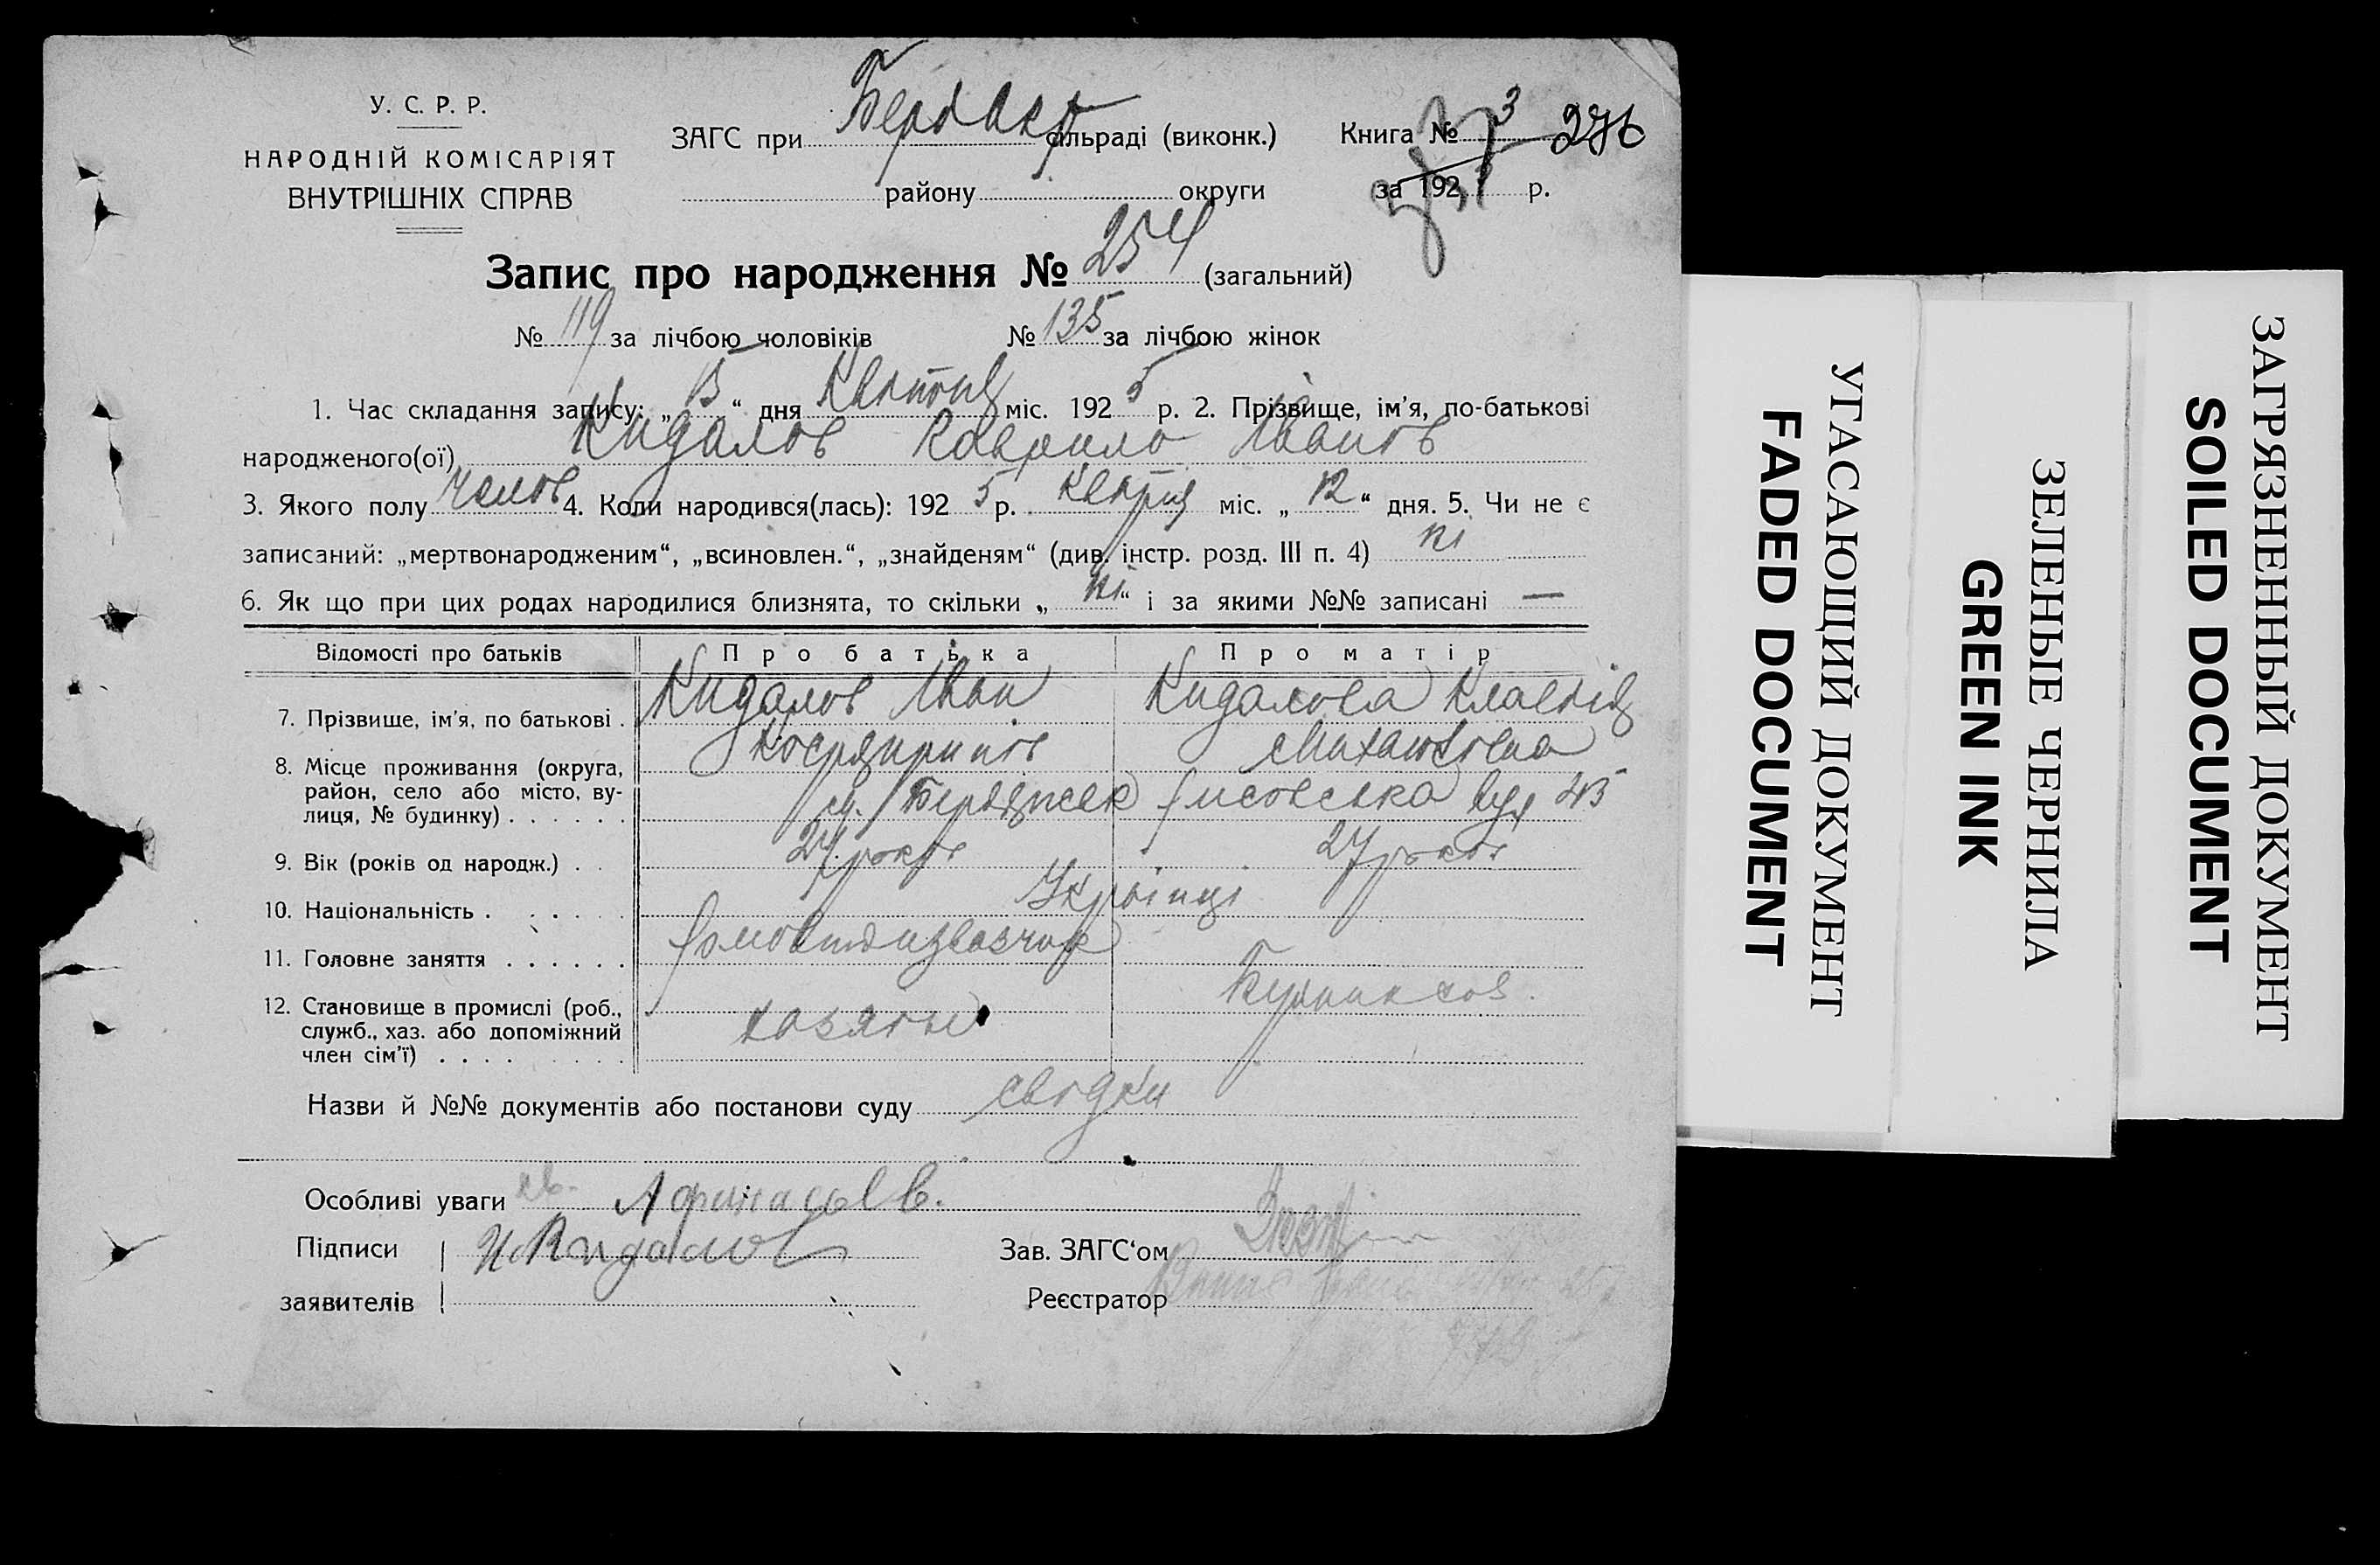 У. С. Р. Р.
НАРОДНІЙ КОМІСАРІЯТ
ВНУТРІШНІХ СПРАВ
ЗАГС при сільраді (виконк.)
району округи
Книга № 3 276
за 192 р.
Запис про народження № 254 (загальний)
№ 119 за лічбою чоловіків № 135 за лічбою жінок
1. Час складання запису: „ 15 “ дня Квітня міс. 192 5 р. 2. Прізвище, ім’я, по-батькові
народженого(ої) Кидалов Гаврило Іванов
3. Якого полу Чолов 4. Коли народився(лась): 192 5 р. Квітня міс. „ 12 “ дня. 5. Чи не є
записаний: „мертвонародженим“, „всиновлен.“, „знайденям“ (див. інстр. розд. III п. 4) ні
6. Як що при цих родах народилися близнята, то скільки „ ні “ і за якими №№ записані —
Відомості про батьків Про батька Про матір
7. Прізвище, ім’я, по батькові . Кидалов Іван Кидалова Клавдія
8. Місце проживання (округа,
район, село або місто, ву-
лиця, № будинку) . . . . . . вул 45
9. Вік (років од народж.) . . 24 років 27 років
10. Національність . . . . . . Українці
11. Головне заняття . . . . . .
12. Становище в промислі (роб.,
служб., хаз. або допоміжний
член сім’ї) . . . . . . . . хазяїн
Назви й №№ документів або постанови суду свідки
Особливі уваги
Підписи И Кидалов Зав. ЗАГС‘ом
заявителів Реєстратор
УГАСАЮЩИЙ ДОКУМЕНТ
FADED DOCUMENT
ЗЕЛЕНЫЕ ЧЕРНИЛА
GREEN INK
ЗАГРЯЗНЕННЫЙ ДОКУМЕНТ
SOILED DOCUMENT